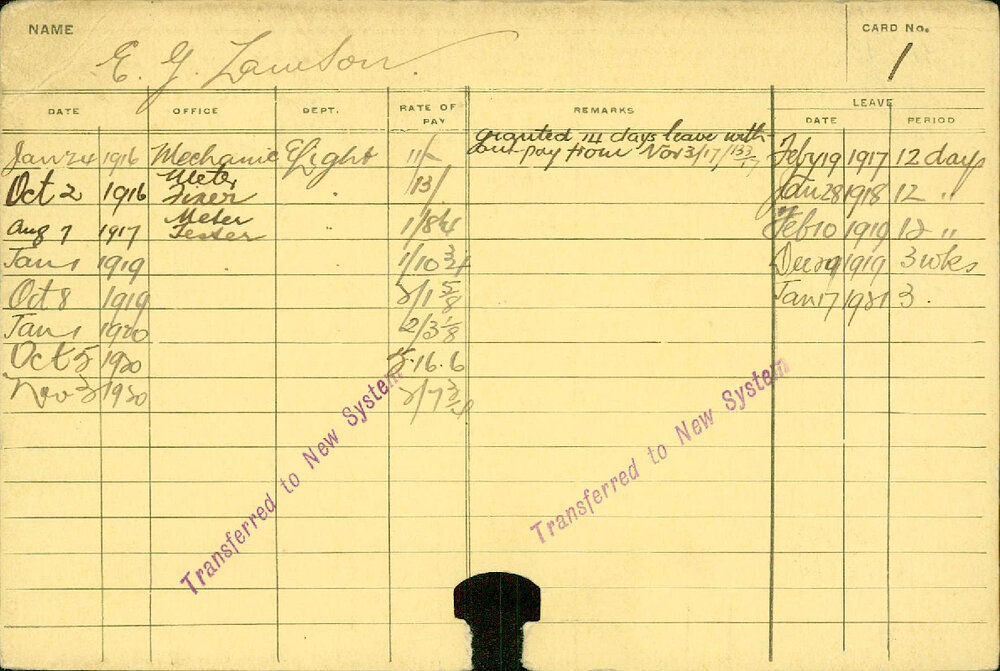 NAME
CARD No.
E. G. Lawson.
1
DATE OFFICE DEPT. RATE OF PAY REMARKS LEAVE
DATE PERIOD
Jan 24 1916 Mechanic E Light 11/- granted 14 days leave with-
out pay from Nov 3/17 Feby 19 1917 12 days
Oct 2 1916 Meter
Fixer 13/ Jan 28 1918 12 "
Aug 7 1917 Meter
Tester 1/8¼ Feb 10 1919 12 "
Jan 1 1919 1/10¾ Dec 29 1919 3 wks
Oct 8 1919 2/1⅝ Jan 17 1921 3
Jan 1 1920 2/3⅛
Oct 5 1920 5.16.6
Nov 3 1920
Transferred to New System
Transferred to New System